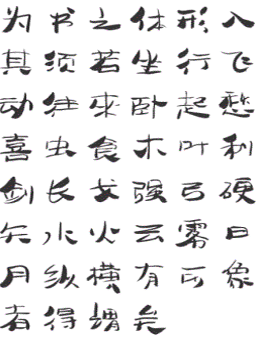 为书之体形入
其须若坐行飞
动往来卧起愁
喜虫食木叶利
剑长戈强弓硬
矢水火云雾日
月纵横有可象
者得谓矣